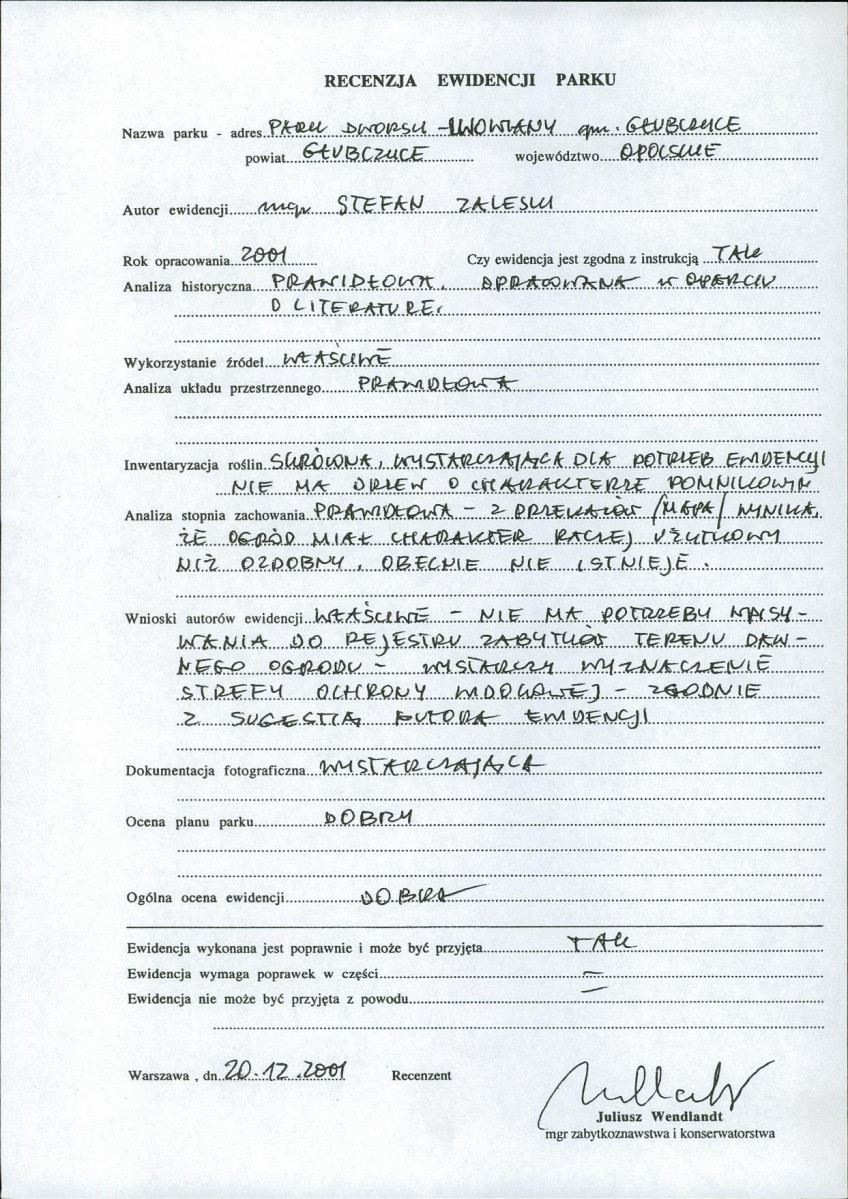 RECENZJA EWIDENCJI PARKU
Nazwa parku - adres PARK DWORSKI - LWOWIANY gm. GŁUBCZYCE
powiat GŁUBCZYCE województwo OPOLSKIE
Autor ewidencji mgr STEFAN ZALESKI
Rok opracowania 2001 Czy ewidencja jest zgodna z instrukcją TAK
Analiza historyczna PRAWIDŁOWA, OPRACOWANA W OPARCIU
O LITERATURĘ.
Wykorzystanie źródeł WŁAŚCIWE
Analiza układu przestrzennego PRAWIDŁOWA
Inwentaryzacja roślin SKRÓCONA, WYSTARCZAJĄCA DLA POTRZEB EWIDENCJI
NIE MA DRZEW O CHARAKTERZE POMNIKOWYM
Analiza stopnia zachowania PRAWIDŁOWA - Z PRZEKAZÓW /MAPA/ WYNIKA,
ŻE OGRÓD MIAŁ CHARAKTER RACZEJ UŻYTKOWY
NIŻ OZDOBNY, OBECNIE NIE ISTNIEJE.
Wnioski autorów ewidencji WŁAŚCIWE - NIE MA POTRZEBY WPISY-
WANIA DO REJESTRU ZABYTKÓW TERENU DAW-
NEGO OGRODU - WYSTARCZY WYZNACZENIE
STREFY OCHRONY WIDOKOWEJ - ZGODNIE
Z SUGESTIĄ AUTORA EWIDENCJI
Dokumentacja fotograficzna WYSTARCZAJĄCA
Ocena planu parku DOBRY
Ogólna ocena ewidencji DOBRA
Ewidencja wykonana jest poprawnie i może być przyjęta TAK
Ewidencja wymaga poprawek w części —
Ewidencja nie może być przyjęta z powodu —
Warszawa , dn. 20.12.2001 Recenzent
Juliusz Wendlandt
mgr zabytkoznawstwa i konserwatorstwa